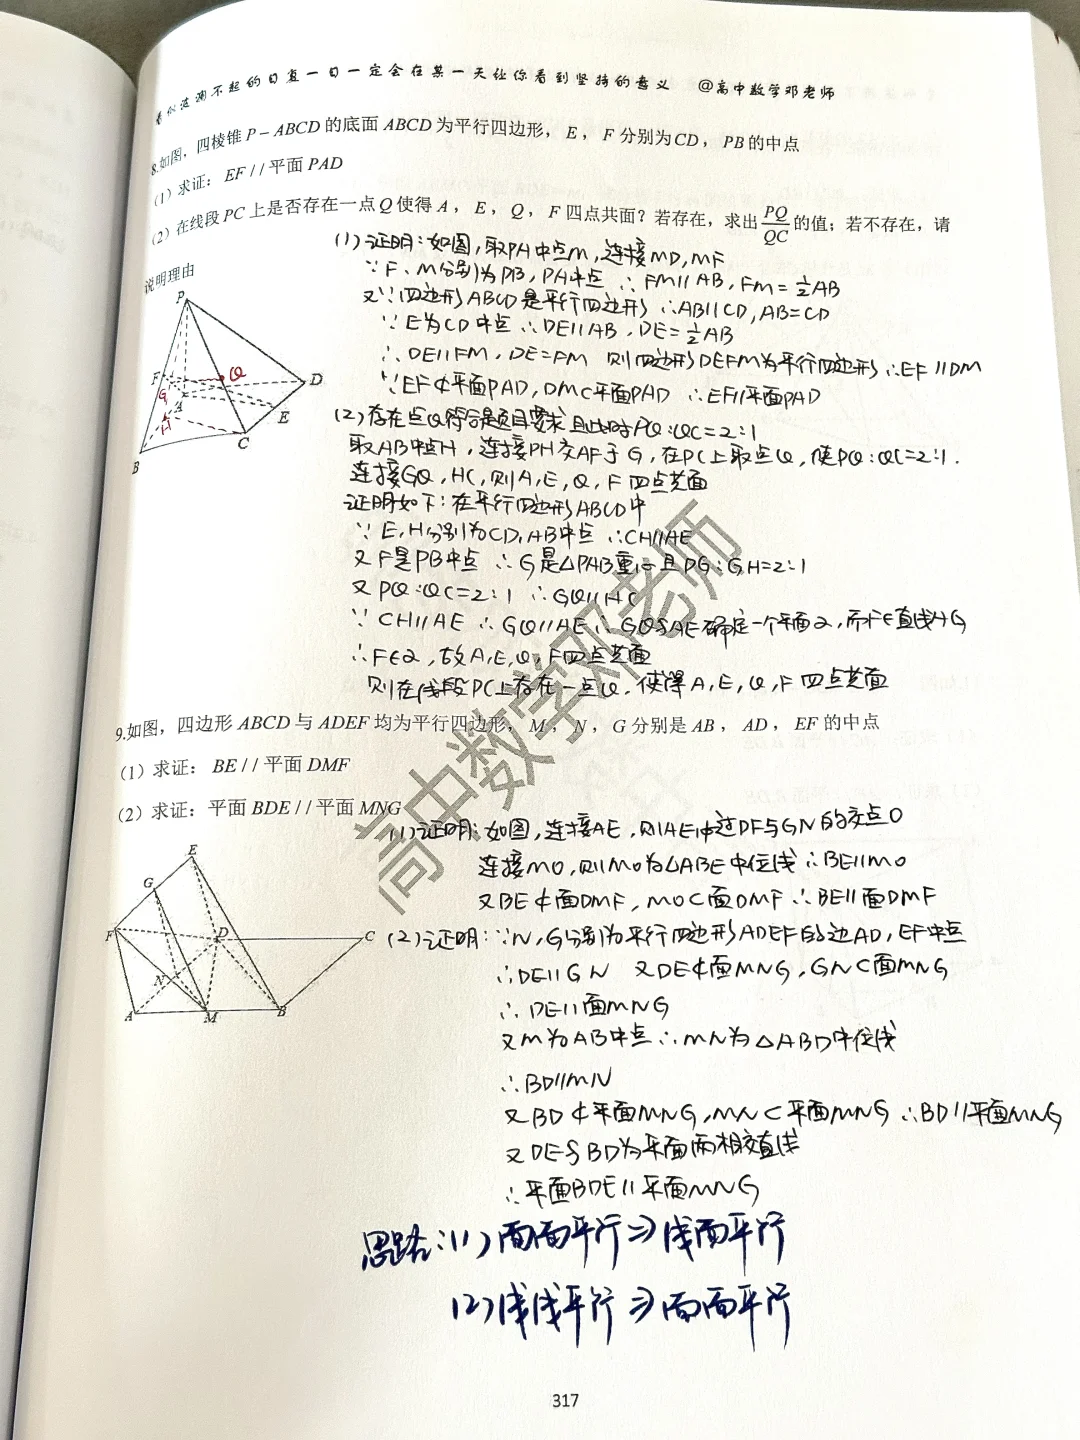 看似波澜不起的日复一日一定会在某一天让你看到坚持的意义 @高中数学邓老师
8.如图，四棱锥 P－ABCD 的底面 ABCD 为平行四边形，E，F 分别为 CD，PB 的中点
（1）求证：EF // 平面 PAD
（2）在线段 PC 上是否存在一点 Q 使得 A，E，Q，F 四点共面？若存在，求出 PQ/QC 的值；若不存在，请
说明理由
P
F
D
Q
G
A
E
H
C
B
(1) 证明：如图，取PA中点M，连接MD，MF
∵F、M分别为PB，PA中点 ∴FM∥AB，FM=1/2AB
又∵四边形ABCD是平行四边形 ∴AB∥CD，AB=CD
∵E为CD中点 ∴DE∥AB，DE=1/2AB
∴DE∥FM，DE=FM 则四边形DEFM为平行四边形 ∴EF∥DM
∵EF⊄平面PAD，DM⊂平面PAD ∴EF∥平面PAD
(2) 存在点Q符合题目要求 且此时PQ:QC=2:1
取AB中点H，连接PH交AF于G，在PC上取点Q，使PQ:QC=2:1.
连接GQ，HC，则A，E，Q，F四点共面
证明如下：在平行四边形ABCD中
∵E，H分别为CD，AB中点 ∴CH∥AE
又F是PB中点 ∴G是△PAB重心且PG:GH=2:1
又PQ:QC=2:1 ∴GQ∥HC
∵CH∥AE ∴GQ∥AE ∴GQ与AE确定一个平面α，而F∈直线AG
∴F∈α，故A，E，Q，F四点共面
则在线段PC上存在一点Q，使得A，E，Q，F四点共面
9.如图，四边形 ABCD 与 ADEF 均为平行四边形，M，N，G 分别是 AB，AD，EF 的中点
（1）求证：BE // 平面 DMF
（2）求证：平面 BDE // 平面 MNG
E
G
F
D
C
N
A
M
B
(1) 证明：如图，连接AE，则AE必过DF与GN的交点O
连接MO，则MO为△ABE中位线 ∴BE∥MO
又BE⊄面DMF，MO⊂面DMF ∴BE∥面DMF
(2) 证明：∵N，G分别为平行四边形ADEF的边AD，EF中点
∴DE∥GN 又DE⊄面MNG，GN⊂面MNG
∴DE∥面MNG
又M为AB中点 ∴MN为△ABD中位线
∴BD∥MN
又BD⊄平面MNG，MN⊂平面MNG ∴BD∥平面MNG
又DE与BD为平面两相交直线
∴平面BDE∥平面MNG
思路：(1) 面面平行⇒线面平行
(2) 线线平行⇒面面平行
高中数学邓老师
317